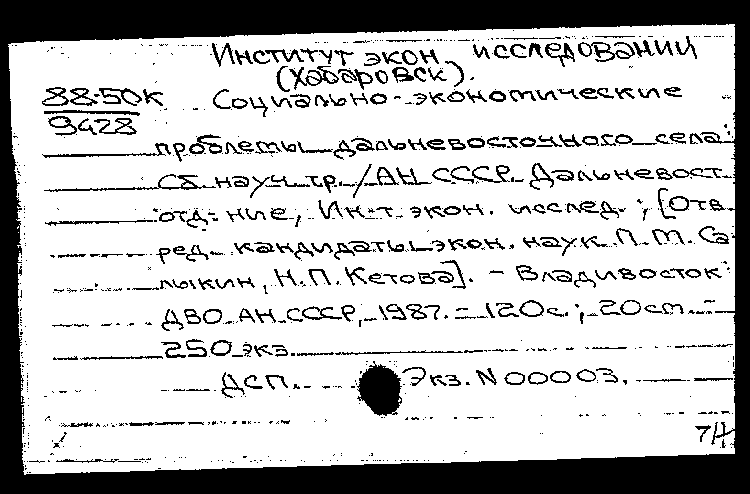 Институт экон. исследований
(Хабаровск).
88-50к Социально-экономические
9428
проблемы дальневосточного села:
Сб. науч. тр. / АН СССР. Дальневост.
отд-ние, Ин-т экон. исслед.; [Отв.
ред. кандидаты экон. наук П. М. Са
лыкин, Н. П. Кетова]. - Владивосток:
ДВО АН СССР, 1987. - 120с.; 20см. -
250 экз.
ДСП. Экз. N 00003.